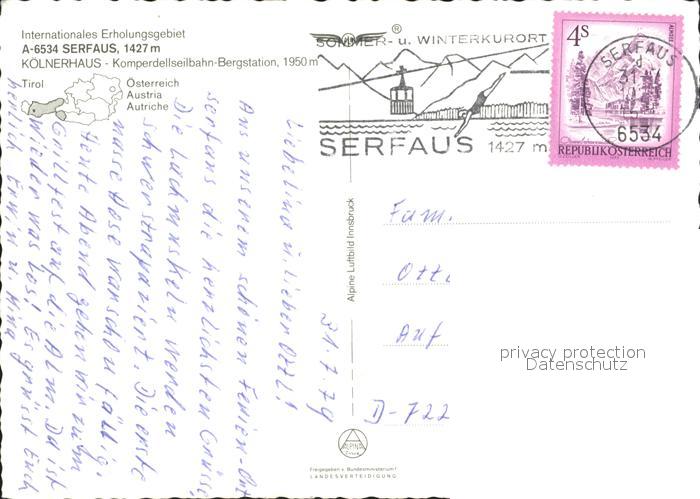 Internationales Erholungsgebiet
A-6534 SERFAUS, 1427 m
KÖLNERHAUS - Komperdellseilbahn-Bergstation, 1950 m
Tirol
Österreich
Austria
Autriche
®
SOMMER- u. WINTERKURORT
SERFAUS 1427 m
4S
REPUBLIK ÖSTERREICH
SERFAUS
6534
31.7.79
Liebe Lina u. lieber Ottl!
Aus unserem schönen Ferien-Ort
Serfaus die herzlichsten Grüsse
Die Lachmuskeln werden
schwer strapaziert. Die erste
nasse Hose war schon fällig.
Heute Abend gehen wir zum
Grillfest auf die Alm. Da ist
wieder was los! Es grüsst Euch
Erwin u.
Alpine Luftbild Innsbruck
Fam.
Ott
Auf
D-722
privacy protection
Datenschutz
ALPINE
Freigegeben v. Bundesministerium f.
LANDESVERTEIDIGUNG